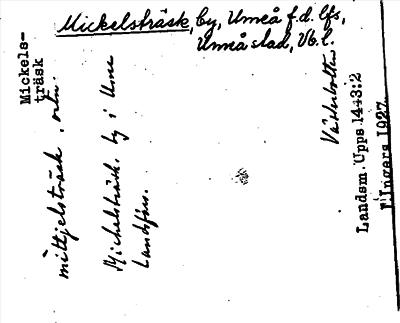 Mickelsträsk, by, Umeå f.d. lfs,
Umeå stad, Vb. l.
Mickels-
träsk
mittjelsträsk, ortn.
Mickelsträsk, by i Ume
Landsförs.
Västerbotten
Landsm. Upps. 1443:2
Ingers 1927.